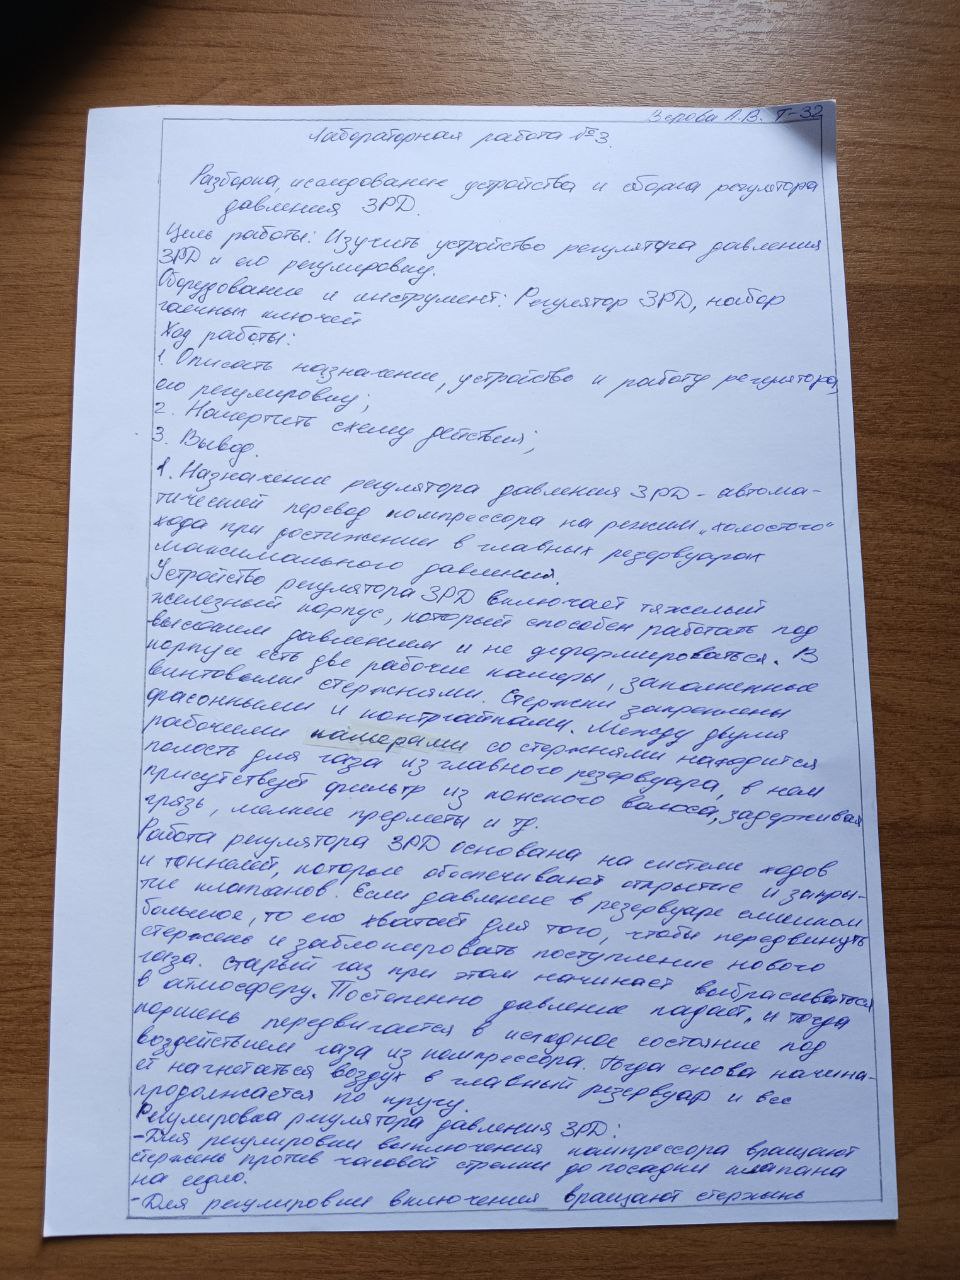 Зерова А.В. Т-32
Лабораторная работа №3.
Разборка, исследование устройства и сборка регулятора
давления ЗРД.
Цель работы: Изучить устройство регулятора давления
ЗРД и его регулировку.
Оборудование и инструмент: Регулятор ЗРД, набор
гаечных ключей
Ход работы:
1. Описать назначение, устройство и работу регулятора,
его регулировку;
2. Начертить схему действия;
3. Вывод.
1. Назначение регулятора давления ЗРД - автома-
тический перевод компрессора на режим "холостого"
хода при достижении в главных резервуарах
максимального давления.
Устройство регулятора ЗРД включает тяжелый
железный корпус, который способен работать под
высоким давлением и не деформироваться. В
корпусе есть две рабочие камеры, заполненные
винтовыми стержнями. Стержни закреплены
фасонными и контргайками. Между двумя
рабочими камерами со стержнями находится
полость для газа из главного резервуара, в нем
присутствует фильтр из конского волоса, задерживая
грязь, мелкие предметы и тд.
Работа регулятора ЗРД основана на системе ходов
и тоннелей, которые обеспечивают открытие и закры-
тие клапанов. Если давление в резервуаре слишком
большое, то его хватает для того, чтобы передвинуть
стержень и заблокировать поступление нового
газа. Старый газ при этом начинает выбрасываться
в атмосферу. Постепенно давление падает, и тогда
поршень передвигается в исходное состояние под
воздействием газа из компрессора. Тогда снова начина-
ет нагнетаться воздух в главный резервуар и все
продолжается по кругу.
Регулировка регулятора давления ЗРД:
-Для регулировки выключения компрессора вращают
стержень против часовой стрелки до посадки клапана
на седло.
-Для регулировки включения вращают стержень